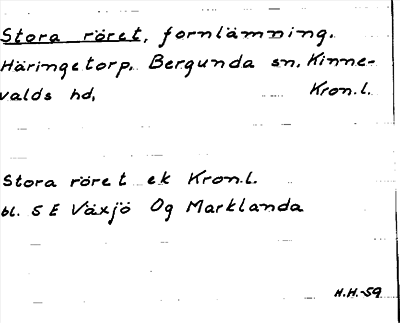 Stora röret, fornlämning.
Häringetorp. Bergunda sn. Kinne-
valds hd. Kron.l.
Stora röret ek Kron.l.
bl. 5 E Växjö Og Marklanda
H.H.-59